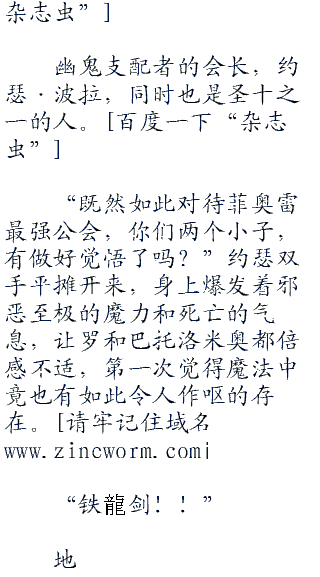 杂志虫”]
幽鬼支配者的会长，约
瑟·波拉，同时也是圣十之
一的人。[百度一下“杂志
虫”]
“既然如此对待菲奥雷
最强公会，你们两个小子，
有做好觉悟了吗？”约瑟双
手平摊开来，身上爆发着邪
恶至极的魔力和死亡的气
息，让罗和巴托洛米奥都倍
感不适，第一次觉得魔法中
竟也有如此令人作呕的存
在。[请牢记住域名
www.zincworm.com|
“铁龍剑！！”
地